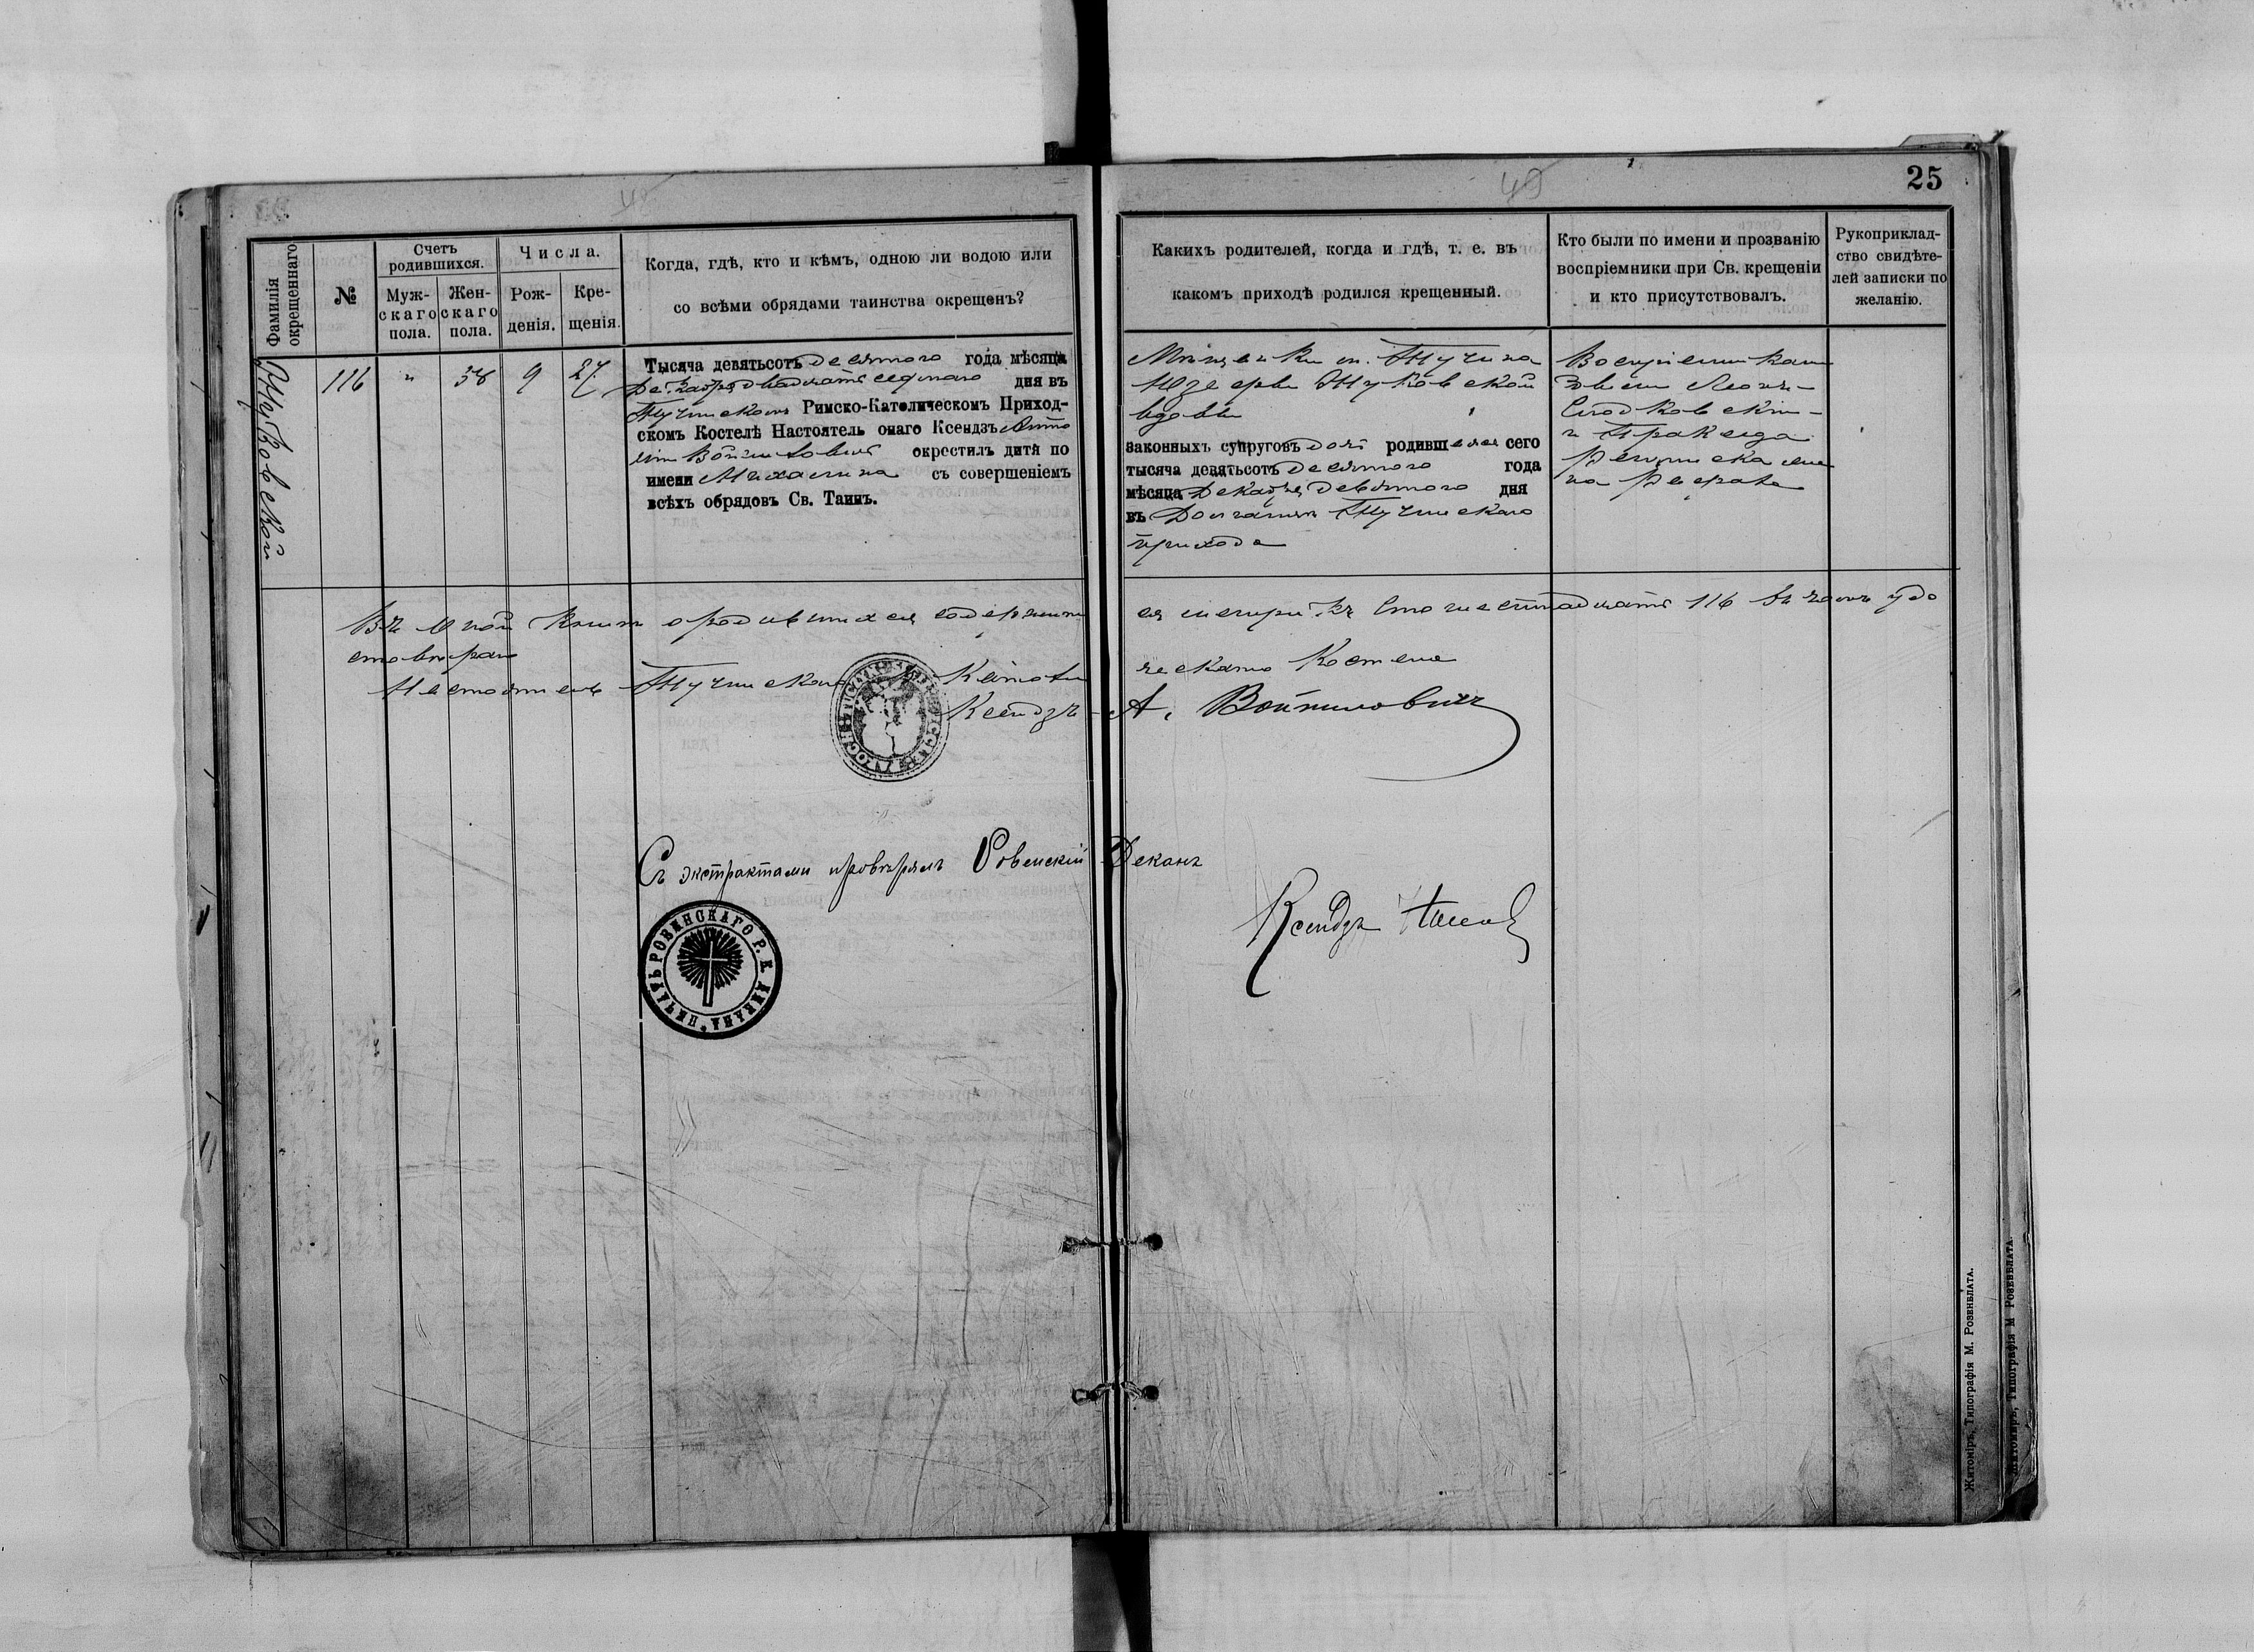 25
Фамилія окрещеннаго
№
Счетъ родившихся.
Муж-
скаго
пола.
Жен-
скаго
пола.
Числа.
Рож-
денія.
Кре-
щенія.
Когда, гдѣ, кто и кѣмъ, одною ли водою или
со всѣми обрядами таинства окрещенъ?
Каких​ъ родителей, когда и гдѣ, т. е. въ
какомъ приходѣ родился крещенный.
Кто были по имени и прозванію
воспріемники при Св. крещеніи
и кто присутствовалъ.
Рукоприклад-
ство свидѣте-
лей записки по
желанію.
116 " 9 27
Тысяча девятьсотъ десятого года мѣсяца
Декабря двадцать седьмого дня въ
Тучинскомъ Римско-Католическомъ Приход-
скомъ Костелѣ Настоятель онаго Ксендзъ
окрестилъ дитя по
имени Михалина съ совершеніемъ
всѣхъ обрядовъ Св. Таинъ.
Мѣщанки м. Тучина
Жуковской
вдовы
законныхъ супруговъ дочь родившаяся сего
тысяча девятьсотъ десятого года
мѣсяца Декабря девятого дня
въ Тучинскаго
прихода
Воспріемниками
были
и
Въ оной книгѣ о родившихся содержит
ся Сто шестнадцать 116 удо
стовѣряю
Настоятель Тучинскаго Р Като
ческаго Костела
Ксендзъ А. Войтиловичъ
Съ экстрактами провѣрялъ Ровенскій Деканъ
Ксендзъ
ПЕЧАТЬ РОВИНСКАГО Р. К. ДЕКАНА
Житоміръ, Типографія М. Розенблата.
Житоміръ, Типографія М Розенблата.